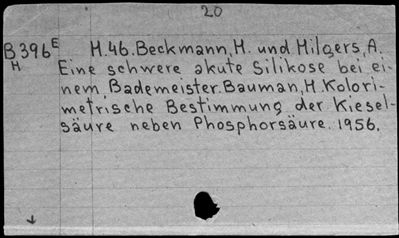 20
B396E H.46. Beckmann, H. und Hilgers, A.
H Eine schwere akute Silikose bei ei-
nem Bademeister. Bauman, H. Kolori-
metrische Bestimmung der Kiesel-
säure neben Phosphorsäure. 1956.